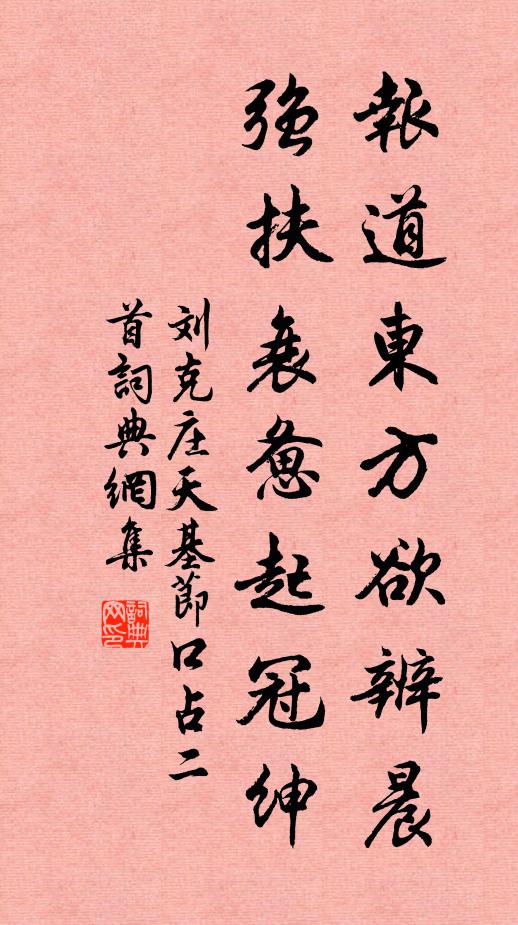 報道東方欲辨晨
強扶衰憊起冠紳
刘克庄天基節口占二
首詞典網集
詞典网印